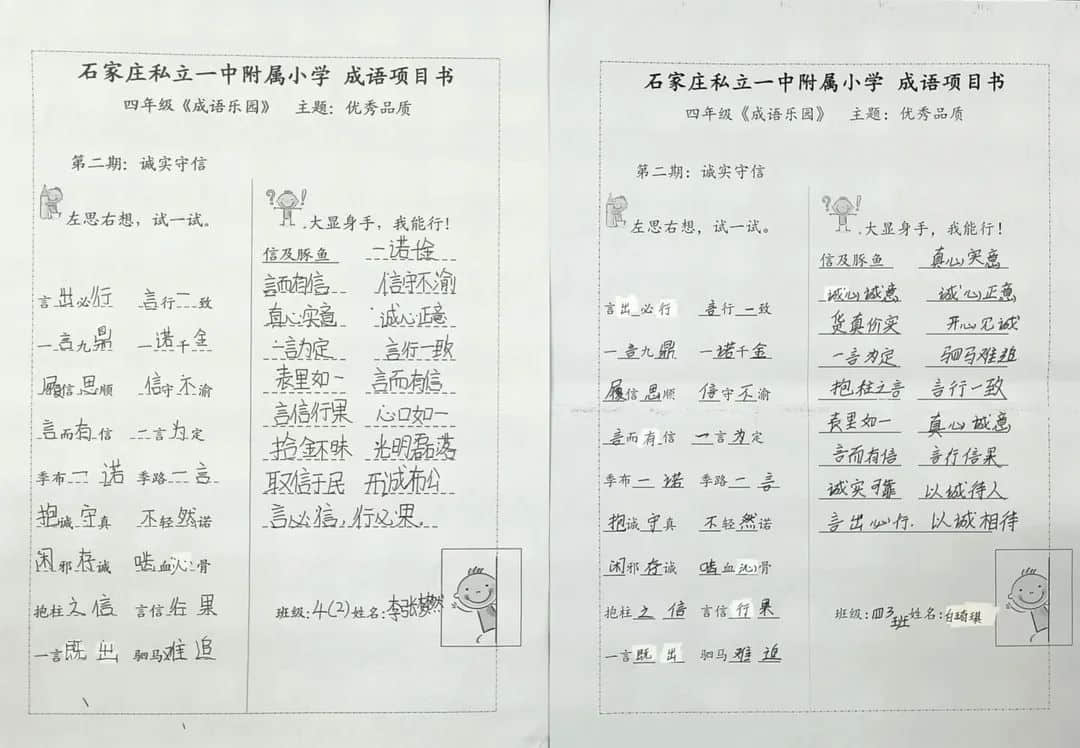 石家庄私立一中附属小学 成语项目书
四年级《成语乐园》 主题：优秀品质
第二期：诚实守信
左思右想，试一试。
言出必行 言行一致
一言九鼎 一诺千金
履信思顺 信守不渝
言而有信 一言为定
季布一诺 季路一言
抱诚守真 不轻然诺
闲邪存诚 啮血沁骨
抱柱之信 言信行果
一言既出 驷马难追
大显身手，我能行！
信及豚鱼 一诺千金
言而有信 信守不渝
真心实意 诚心正意
一言为定 言行一致
表里如一 言而有信
言信行果 心口如一
拾金不昧 光明磊落
取信于民 开诚布公
言必信，行必果
班级：4(2) 姓名：李张梦然
石家庄私立一中附属小学 成语项目书
四年级《成语乐园》 主题：优秀品质
第二期：诚实守信
左思右想，试一试。
言出必行 言行一致
一言九鼎 一诺千金
履信思顺 信守不渝
言而有信 一言为定
季布一诺 季路一言
抱诚守真 不轻然诺
闲邪存诚 啮血沁骨
抱柱之信 言信行果
一言既出 驷马难追
大显身手，我能行！
信及豚鱼 真心实意
诚心诚意 诚心正意
货真价实 开心见诚
一言为定 驷马难追
抱柱之言 言行一致
表里如一 真心诚意
言而有信 言行信果
诚实可靠 以诚待人
言出必行．以诚相待
班级：四3班 姓名：白琦琪